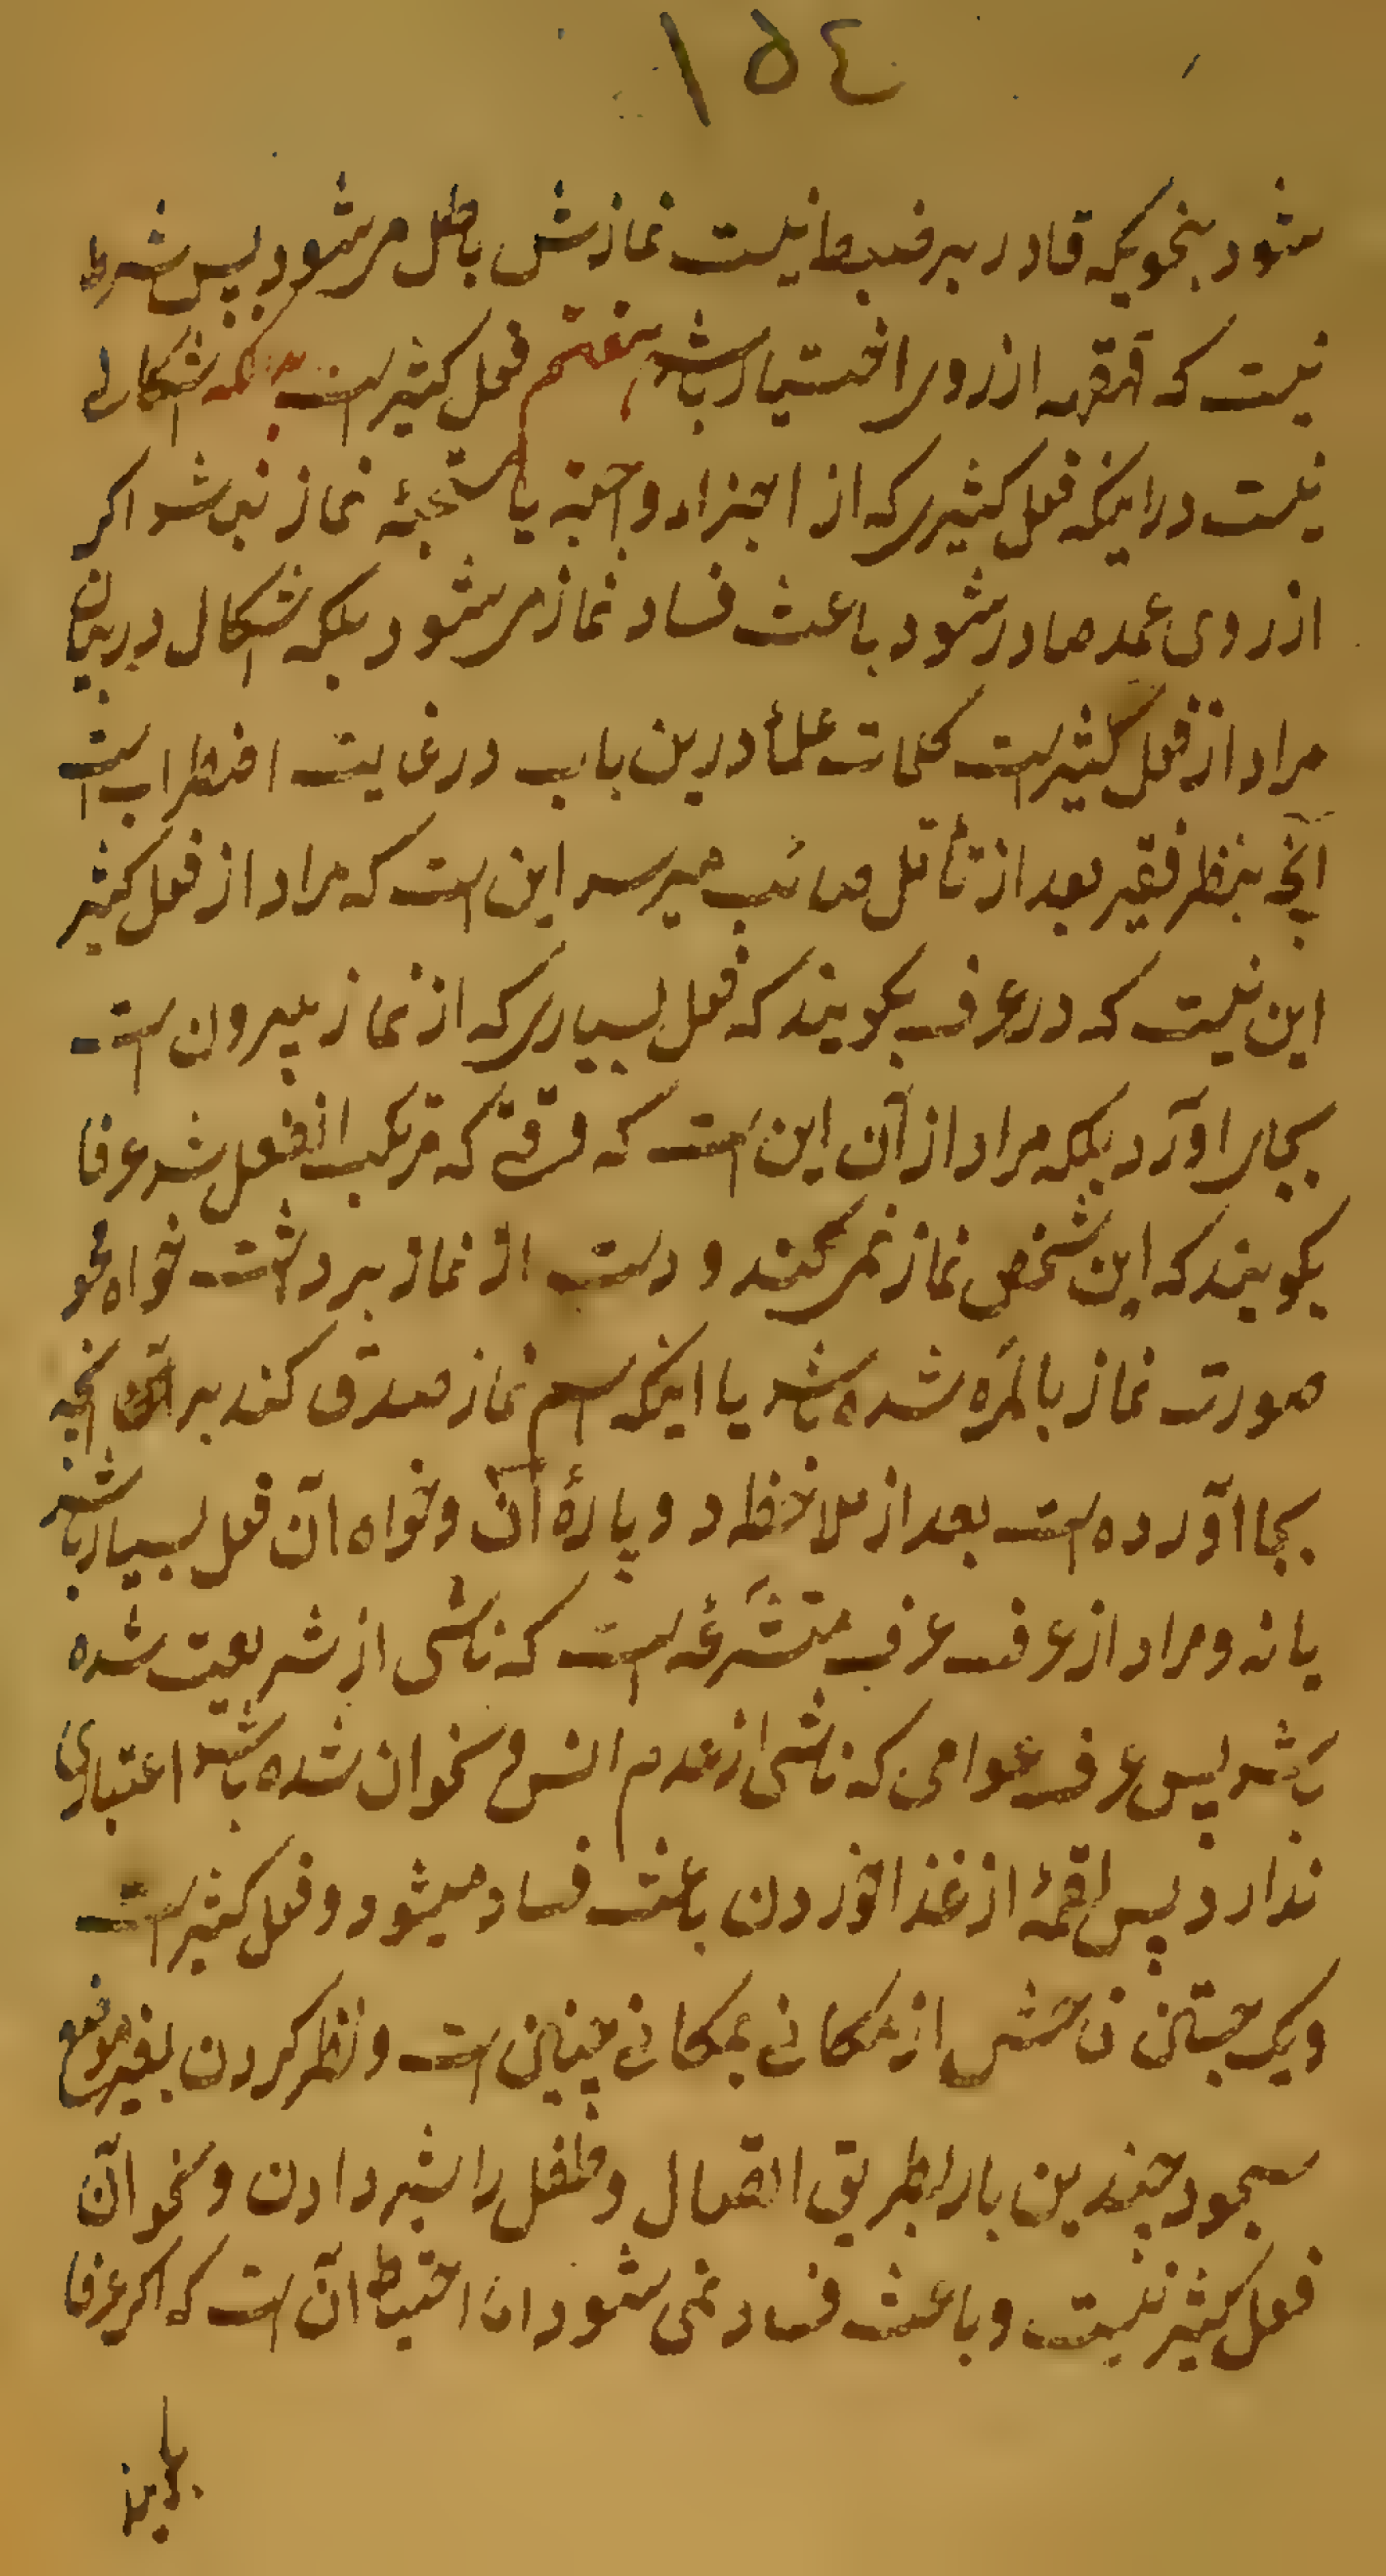 ۱۵٤
شود بنحویکه قادر بر ضبط نیست نمازش باطل مرشود پس شرط
نیست که قهقهه از روی اختیار باشد هفتم فعل کثیر است بدانکه اشکالی
نیست در اینکه فعل کثیری که از اجزاء واجبه یا مستحبّه نماز نباشد اکر
از روی عمد صادر شود باعث فساد نماز مرشود بلکه اشکال در بیان
مراد از فعل کثیر است کلمات علماء درین باب در غایت اضطراب است
آنچه بنظر فقیر بعد از تأمّل صائب میرسد این است که مراد از فعل کثیر
این نیست که در عرف بکویند که فعل بسیاری که از نماز بیرون است
بجای اورد بلکه مراد از آن این است که وقتی که مرتکب انفعل شد عرفا
بکویند که این شخص نماز نمرکند و دست از نماز برداشت خواه محو
صورت نماز بالمرّه شده باشد یا اینکه اسم نماز صدق کند بر آنچه
بجا اورده است بعد از ملاحظه دو پارهٔ آن و خواه آن فعل بسیار باشد
یا نه و مراد از عرف عرف متشرّعه است که ناشی از شریعت شده
باشد پس عرف عوامی که ناشی از عدم انس و نحو ان شده باشد اعتباری
ندارد پس لقمهٔ از غذا خوردن باعث فساد میشود و فعل کثیر است
ویک جستن فاحش از مکانی بمکانی چنین است و نظر کردن بغیر موضع
سجود چندین بار بطریق اتصال و طفل را شیر دادن و نحو آن
فعل کثیر نیست و باعث فساد نمی شود امّا احتیاط آن است که اکر عرفا